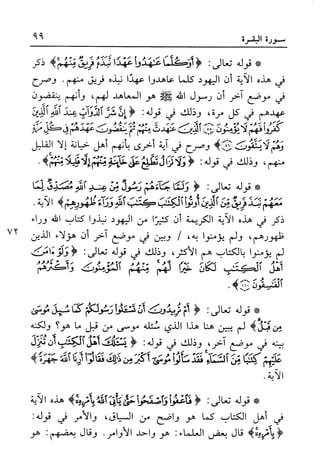 سورة البقرة
٩٩
* قوله تعالى: ﴿أَوَكُلَّمَا عَاهَدُوا عَهْدًا نَبَذَهُ فَرِيقٌ مِنْهُمْ﴾ ذكر
في هذه الآية أن اليهود كلما عاهدوا عهدًا نبذه فريق منهم. وصرح
في موضع آخر أن رسول الله ﷺ هو المعاهد لهم، وأنهم ينقضون
عهدهم في كل مرة، وذلك في قوله: ﴿إِنَّ شَرَّ الدَّوَابِّ عِنْدَ اللَّهِ الَّذِينَ
كَفَرُوا فَهُمْ لَا يُؤْمِنُونَ ۝ الَّذِينَ عَاهَدْتَ مِنْهُمْ ثُمَّ يَنْقُضُونَ عَهْدَهُمْ فِي كُلِّ مَرَّةٍ
وَهُمْ لَا يَتَّقُونَ ۝﴾ وصرح في آية أخرى بأنهم أهل خيانة إلا القليل
منهم، وذلك في قوله: ﴿وَلَا تَزَالُ تَطَّلِعُ عَلَى خَائِنَةٍ مِنْهُمْ إِلَّا قَلِيلًا مِنْهُمْ﴾.
* قوله تعالى: ﴿وَلَمَّا جَاءَهُمْ رَسُولٌ مِنْ عِنْدِ اللَّهِ مُصَدِّقٌ لِمَا
مَعَهُمْ نَبَذَ فَرِيقٌ مِنَ الَّذِينَ أُوتُوا الْكِتَابَ كِتَابَ اللَّهِ وَرَاءَ ظُهُورِهِمْ﴾ الآية.
ذكر في هذه الآية الكريمة أن كثيرًا من اليهود نبذوا كتاب الله وراء
ظهورهم، ولم يؤمنوا به، / وبين في موضع آخر أن هؤلاء الذين
٧٢
لم يؤمنوا بالكتاب هم الأكثر، وذلك في قوله تعالى: ﴿وَلَوْ آمَنَ
أَهْلُ الْكِتَابِ لَكَانَ خَيْرًا لَهُمْ مِنْهُمُ الْمُؤْمِنُونَ وَأَكْثَرُهُمُ
الْفَاسِقُونَ ۝﴾.
* قوله تعالى: ﴿أَمْ تُرِيدُونَ أَنْ تَسْأَلُوا رَسُولَكُمْ كَمَا سُئِلَ مُوسَى
مِنْ قَبْلُ﴾ لم يبين هنا هذا الذي سُئله موسى من قبل ما هو؟ ولكنه
بينه في موضع آخر، وذلك في قوله: ﴿يَسْأَلُكَ أَهْلُ الْكِتَابِ أَنْ تُنَزِّلَ
عَلَيْهِمْ كِتَابًا مِنَ السَّمَاءِ فَقَدْ سَأَلُوا مُوسَى أَكْبَرَ مِنْ ذَلِكَ فَقَالُوا أَرِنَا اللَّهَ جَهْرَةً﴾
الآية.
* قوله تعالى: ﴿فَاعْفُوا وَاصْفَحُوا حَتَّى يَأْتِيَ اللَّهُ بِأَمْرِهِ﴾ هذه الآية
في أهل الكتاب كما هو واضح من السياق، والأمر في قوله:
﴿بِأَمْرِهِ﴾ قال بعض العلماء: هو واحد الأوامر. وقال بعضهم: هو